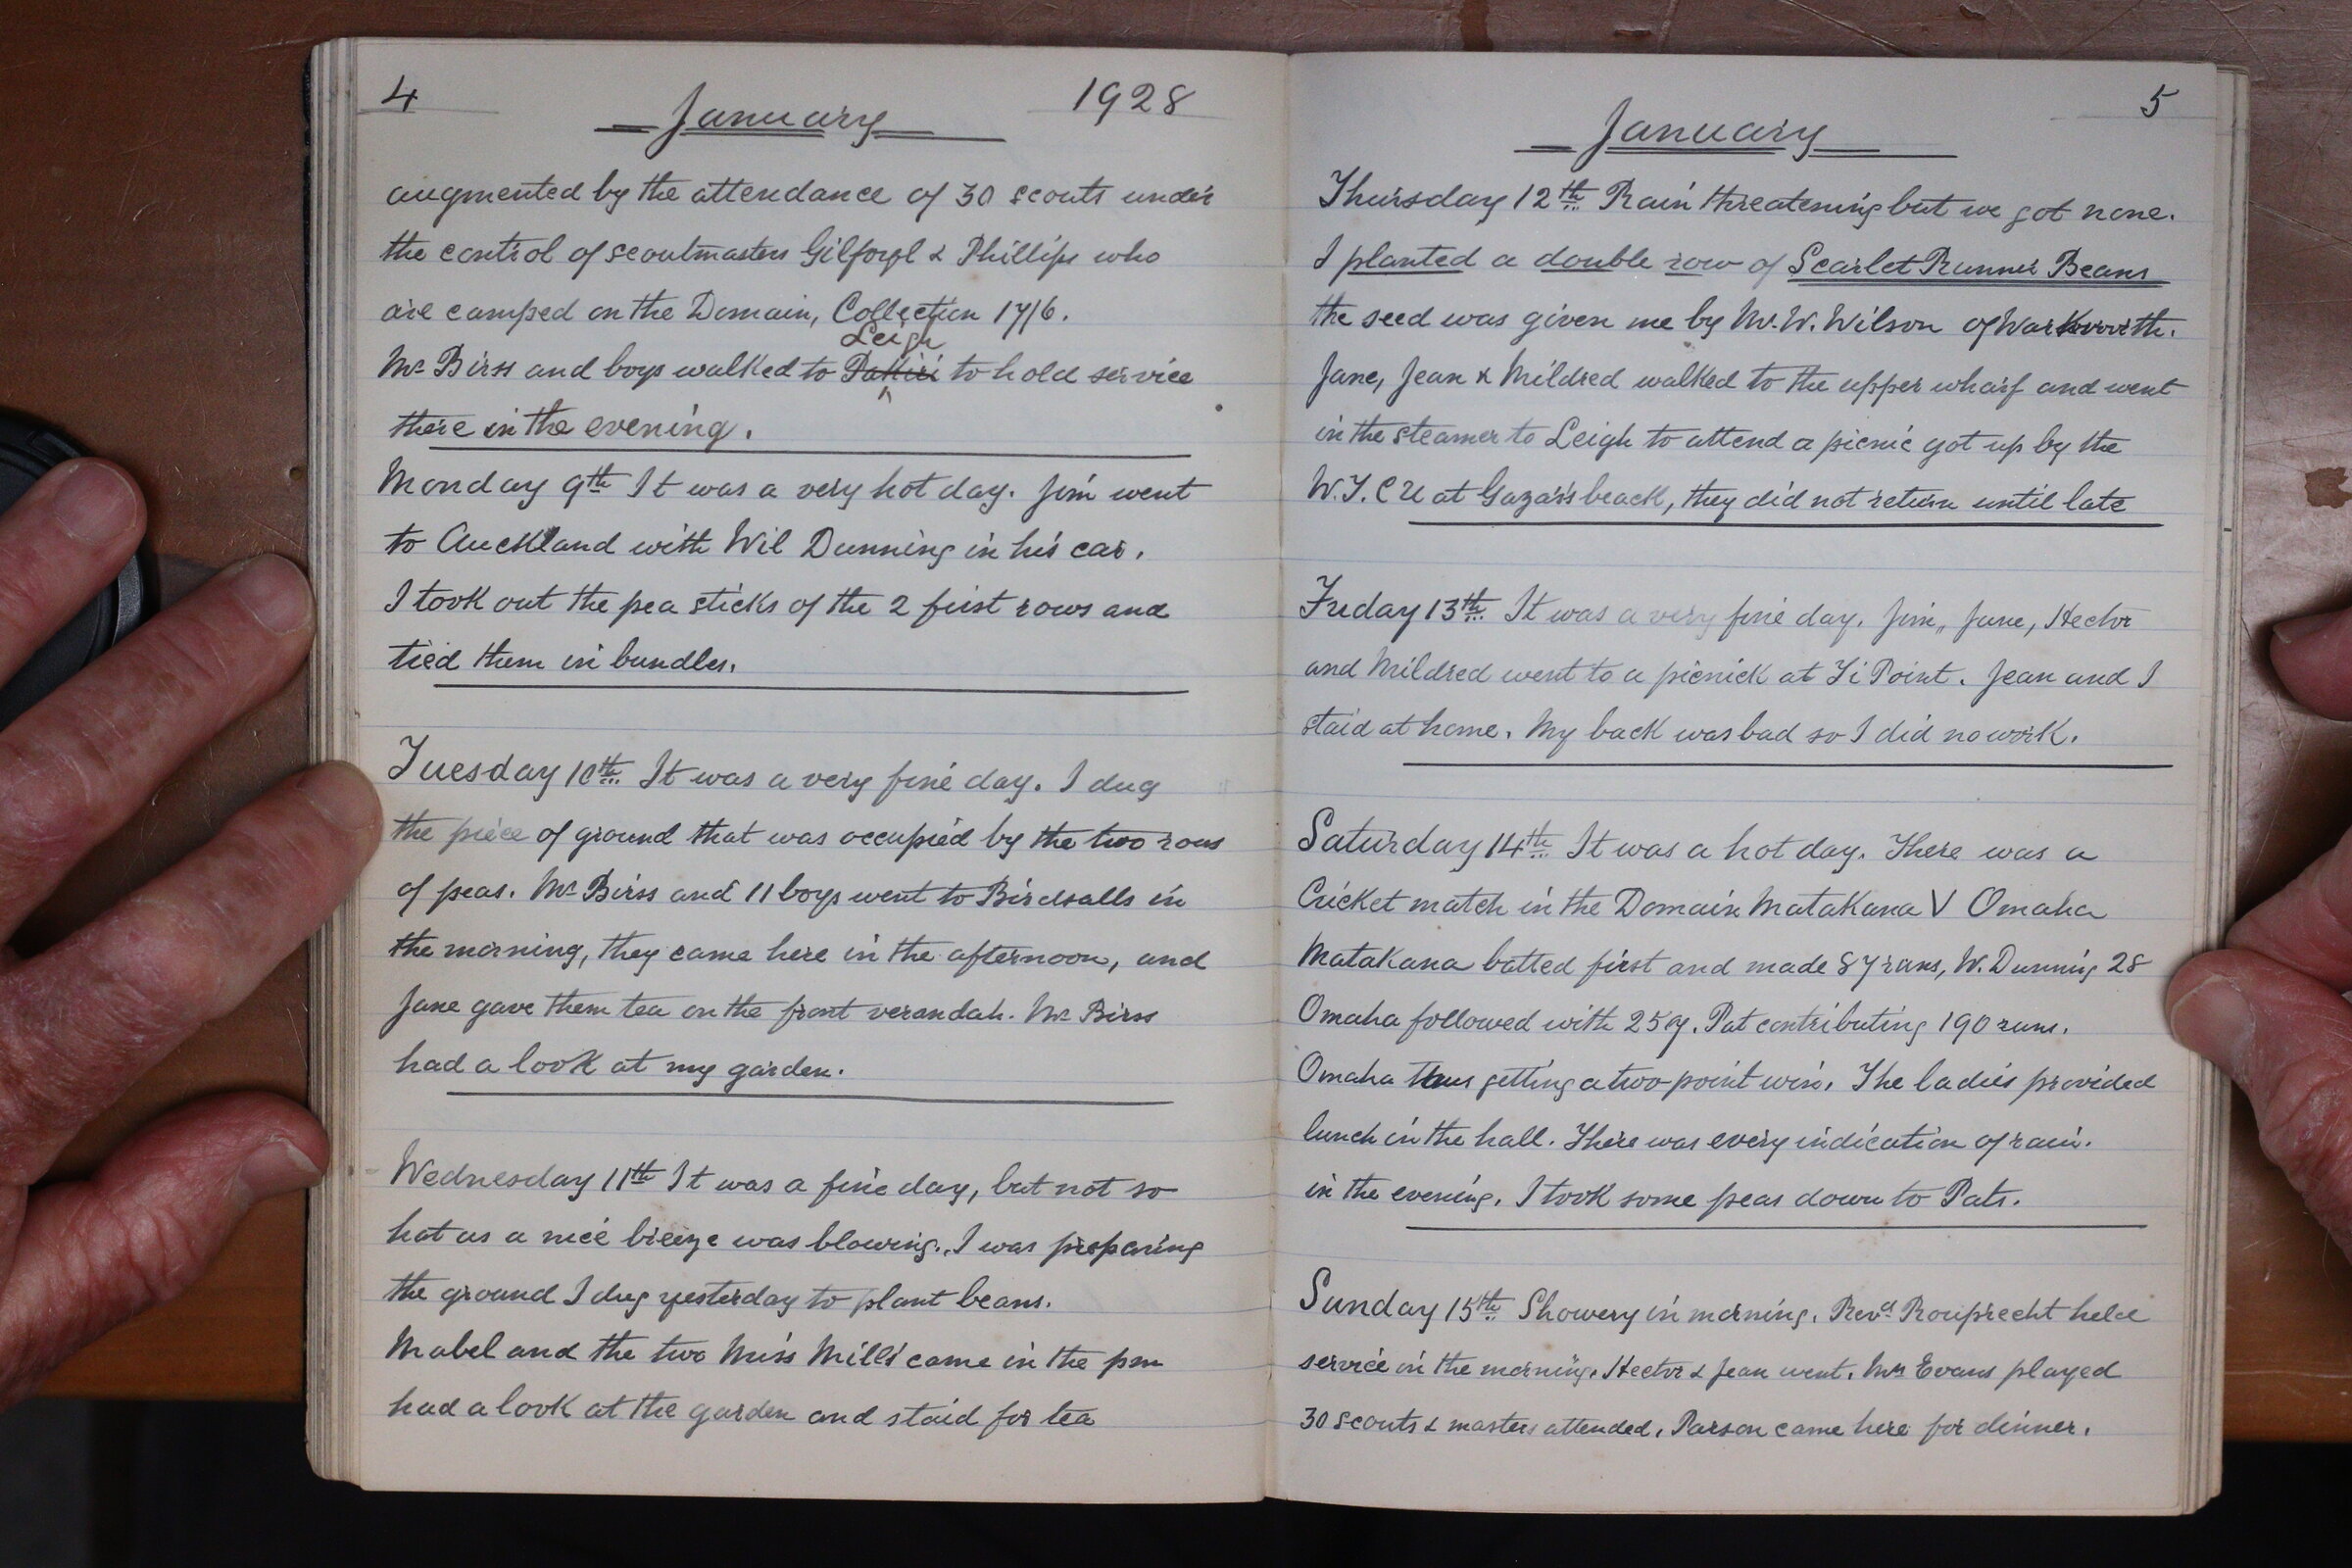 4
January 1928
augmented by the attendance of 30 scouts under
the control of scoutmasters & Phillips who
are camped on the Domain, Collection 17/6.
Leigh
Mr Birss and boys walked to Pakiri to hold service
there in the evening.
Monday 9th It was a very hot day. Jim went
to Auckland with Wil Dunning in his car.
I took out the pea sticks of the 2 first rows and
tied them in bundles.
Tuesday 10th It was a very fine day. I dug
the piece of ground that was occupied by the two rows
of peas. Mr Birss and 11 boys went to Birdsalls in
the morning, they came here in the afternoon, and
Jane gave them tea on the front verandah. Mr Birss
had a look at my garden.
Wednesday 11th It was a fine day, but not so
hot as a nice breeze was blowing. I was preparing
the ground I dug yesterday to plant beans.
Mabel and the two Miss Mills came in the pm
had a look at the garden and staid for tea
5
January
Thursday 12th Rain threatening but we got none.
I planted a double row of Scarlet Runner Beans
the seed was given me by Mr. W. Wilson of Warkworth.
Jane, Jean & Mildred walked to the upper wharf and went
in the steamer to Leigh to attend a picnic got up by the
W.T.C U at beach, they did not return until late
Friday 13th It was a very fine day. Jim, Jane, Hector
and Mildred went to a picnick at Ti Point. Jean and I
staid at home. My back was bad so I did no work.
Saturday 14th It was a hot day. There was a
Cricket match in the Domain Matakana V Omaha
Matakana batted first and made 87 runs, W. Dunning 28
Omaha followed with 259. Pat contributing 190 runs.
Omaha thus getting a two point win. The ladies provided
lunch in the hall. There was every indication of rain.
in the evening. I took some peas down to Pats.
Sunday 15th Showery in morning. Revd Rouprecht held
service in the morning. Hector & Jean went. Mrs Evans played
30 scouts & masters attended. Parson came here for dinner.